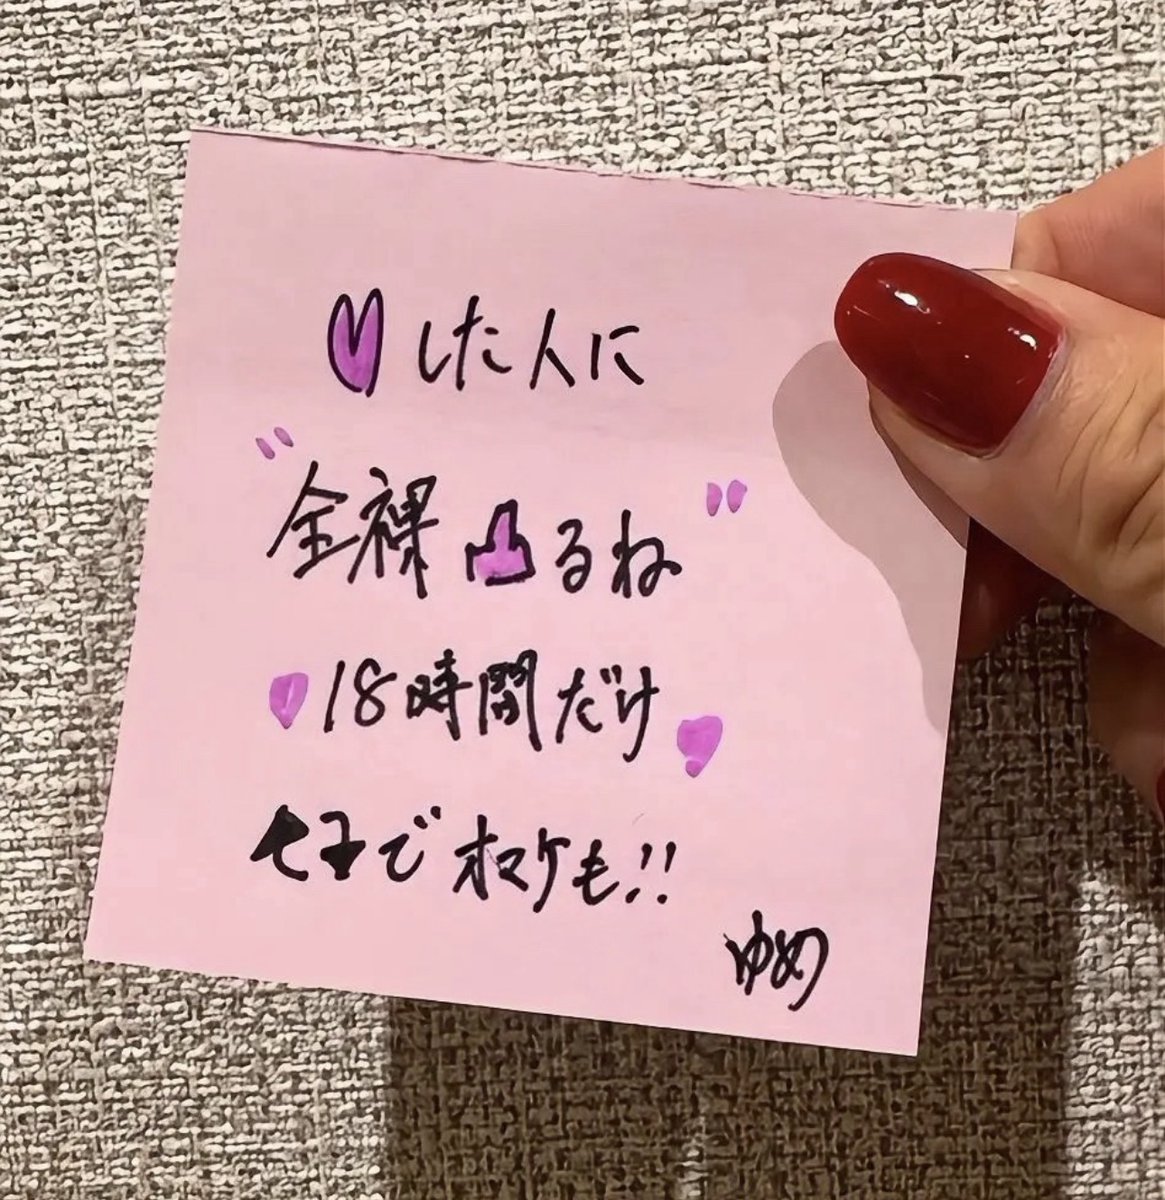 ♡した人に
"全裸凸るね"
♡18時間だけ♡
七子でオマケも!!
ゆめ